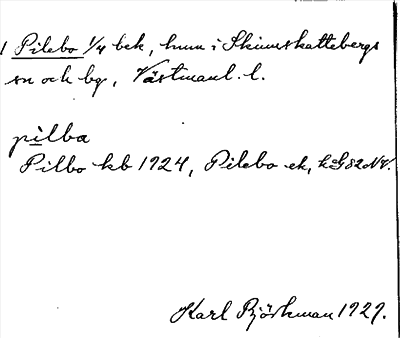 1 Pilebo 1/4 bek, hum i Skinnskattebergs
sn och bg, Västmanl. l.
pilba
Pilbo kb 1924, Pilebo ek, k:G82NV.
Karl Björkman 1929.